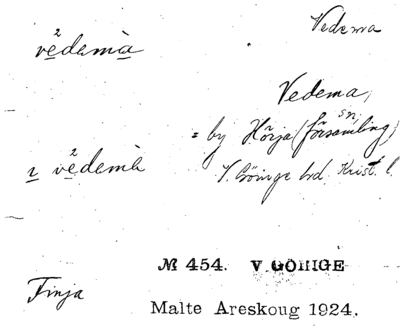 Vedema
vèdemà
Vedema,
= by Hörja (församling)
sn,
ı vèdemà
V. Göinge hd. Krist. l.
№ 454. V. GÖINGE
Finja
Malte Areskoug 1924.